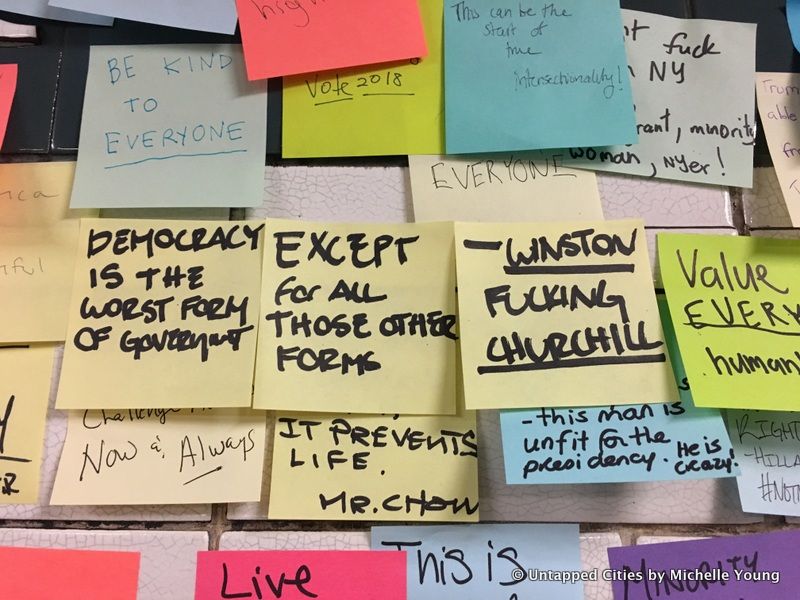 BE KIND
TO
EVERYONE
Vote 2018
This can be the
start of
true
intersectionality!
fuck
NY
minority
woman, NYer!
Trum
able
EVERYONE
DEMOCRACY
IS THE
WORST FORM
OF GOVERNMT
EXCEPT
for ALL
THOSE OTHER
FORMS
— WINSTON
FUCKING
CHURCHILL
Value
EVERY
human
Now & Always
IT PREVENTS
LIFE.
MR. CHOW
- this man is
unfit for the
presidency. He is
crazy!
RIGHT
-HILLA
#NOT
Live
This is
MINORITY
© Untapped Cities by Michelle Young